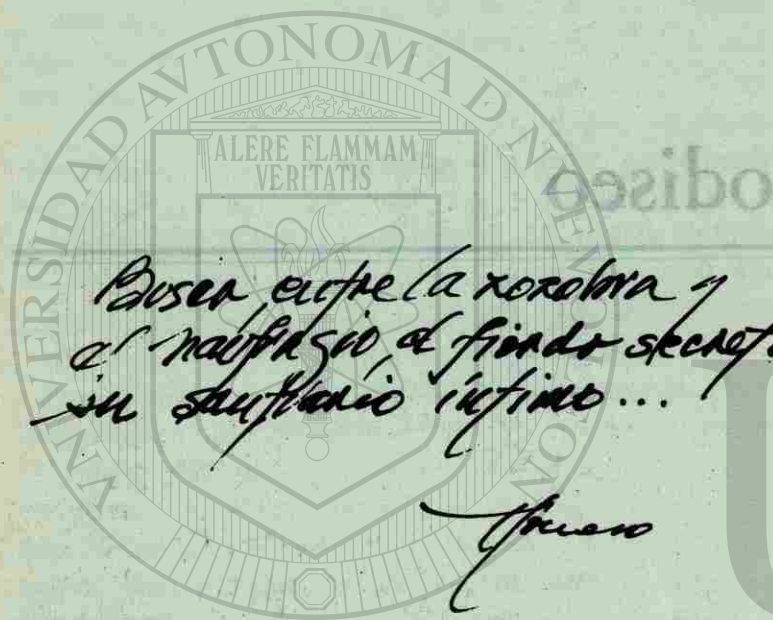 UNIVERSIDAD AVTONOMA D NVEVO LEON
ALERE FLAMMAM
VERITATIS
odiseo
Buscar entre la zozobra y
el naufragio, el fiordo secreto
su santuario íntimo...